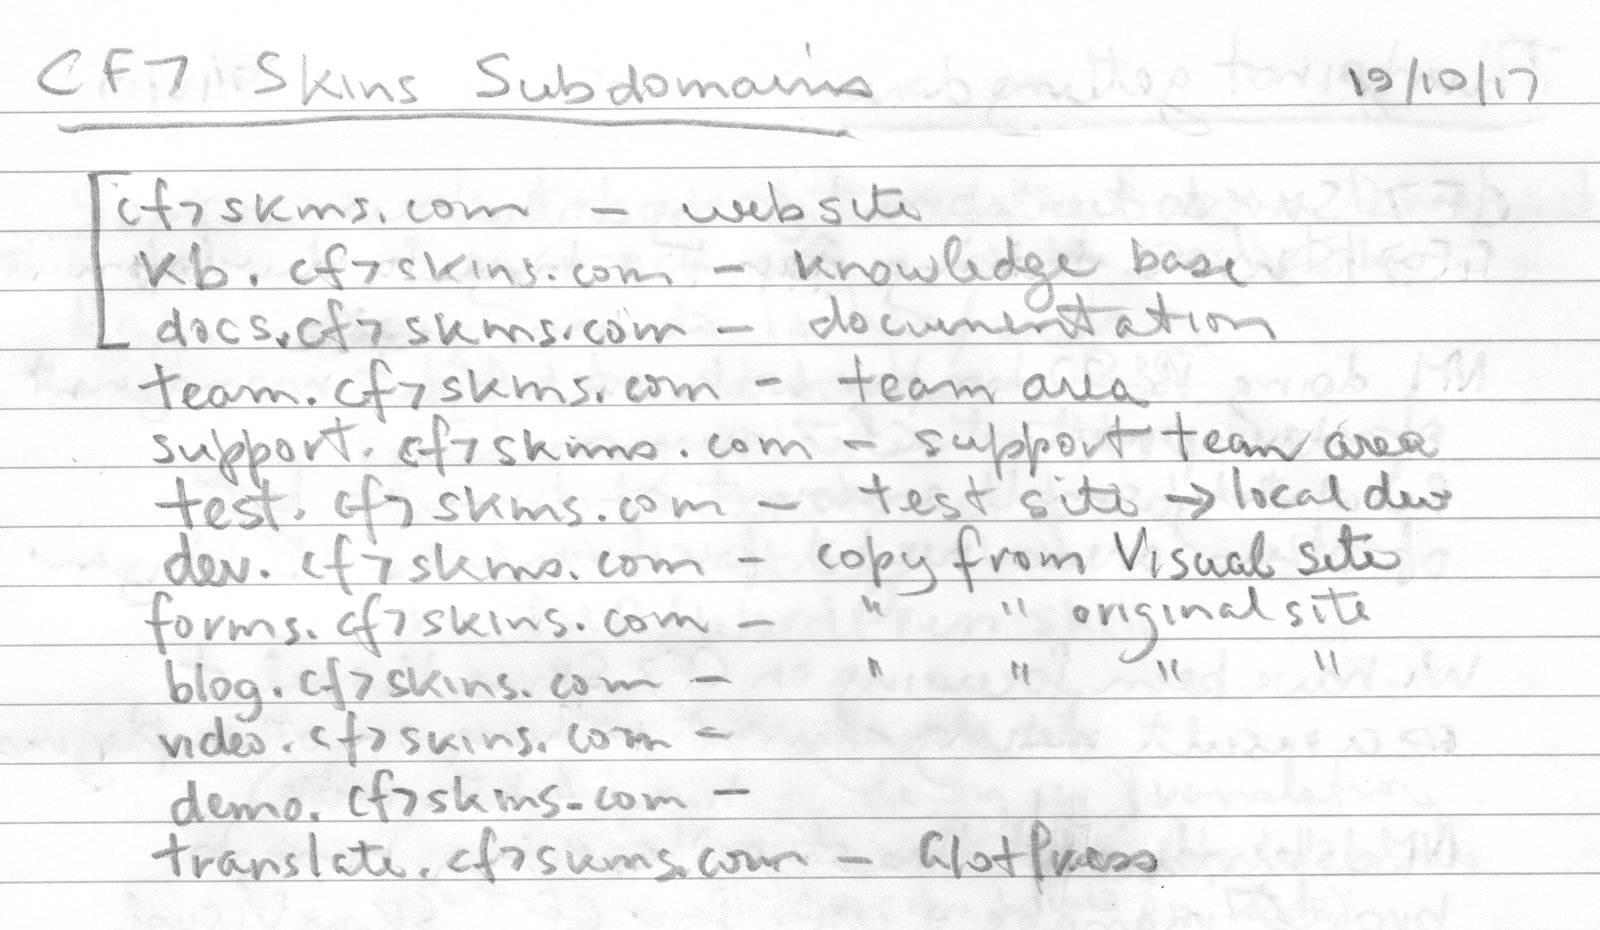 CF7 Skins Subdomains 19/10/17
cf7skins.com - website
kb.cf7skins.com - knowledge base
docs.cf7skins.com - documentation
team.cf7skins.com - team area
support.cf7skins.com - support team area
test.cf7skins.com - test site → local dev
dev.cf7skins.com - copy from Visual site
forms.cf7skins.com - " " original site
blog.cf7skins.com - " " " "
video.cf7skins.com -
demo.cf7skins.com -
translate.cf7skins.com - GlotPress